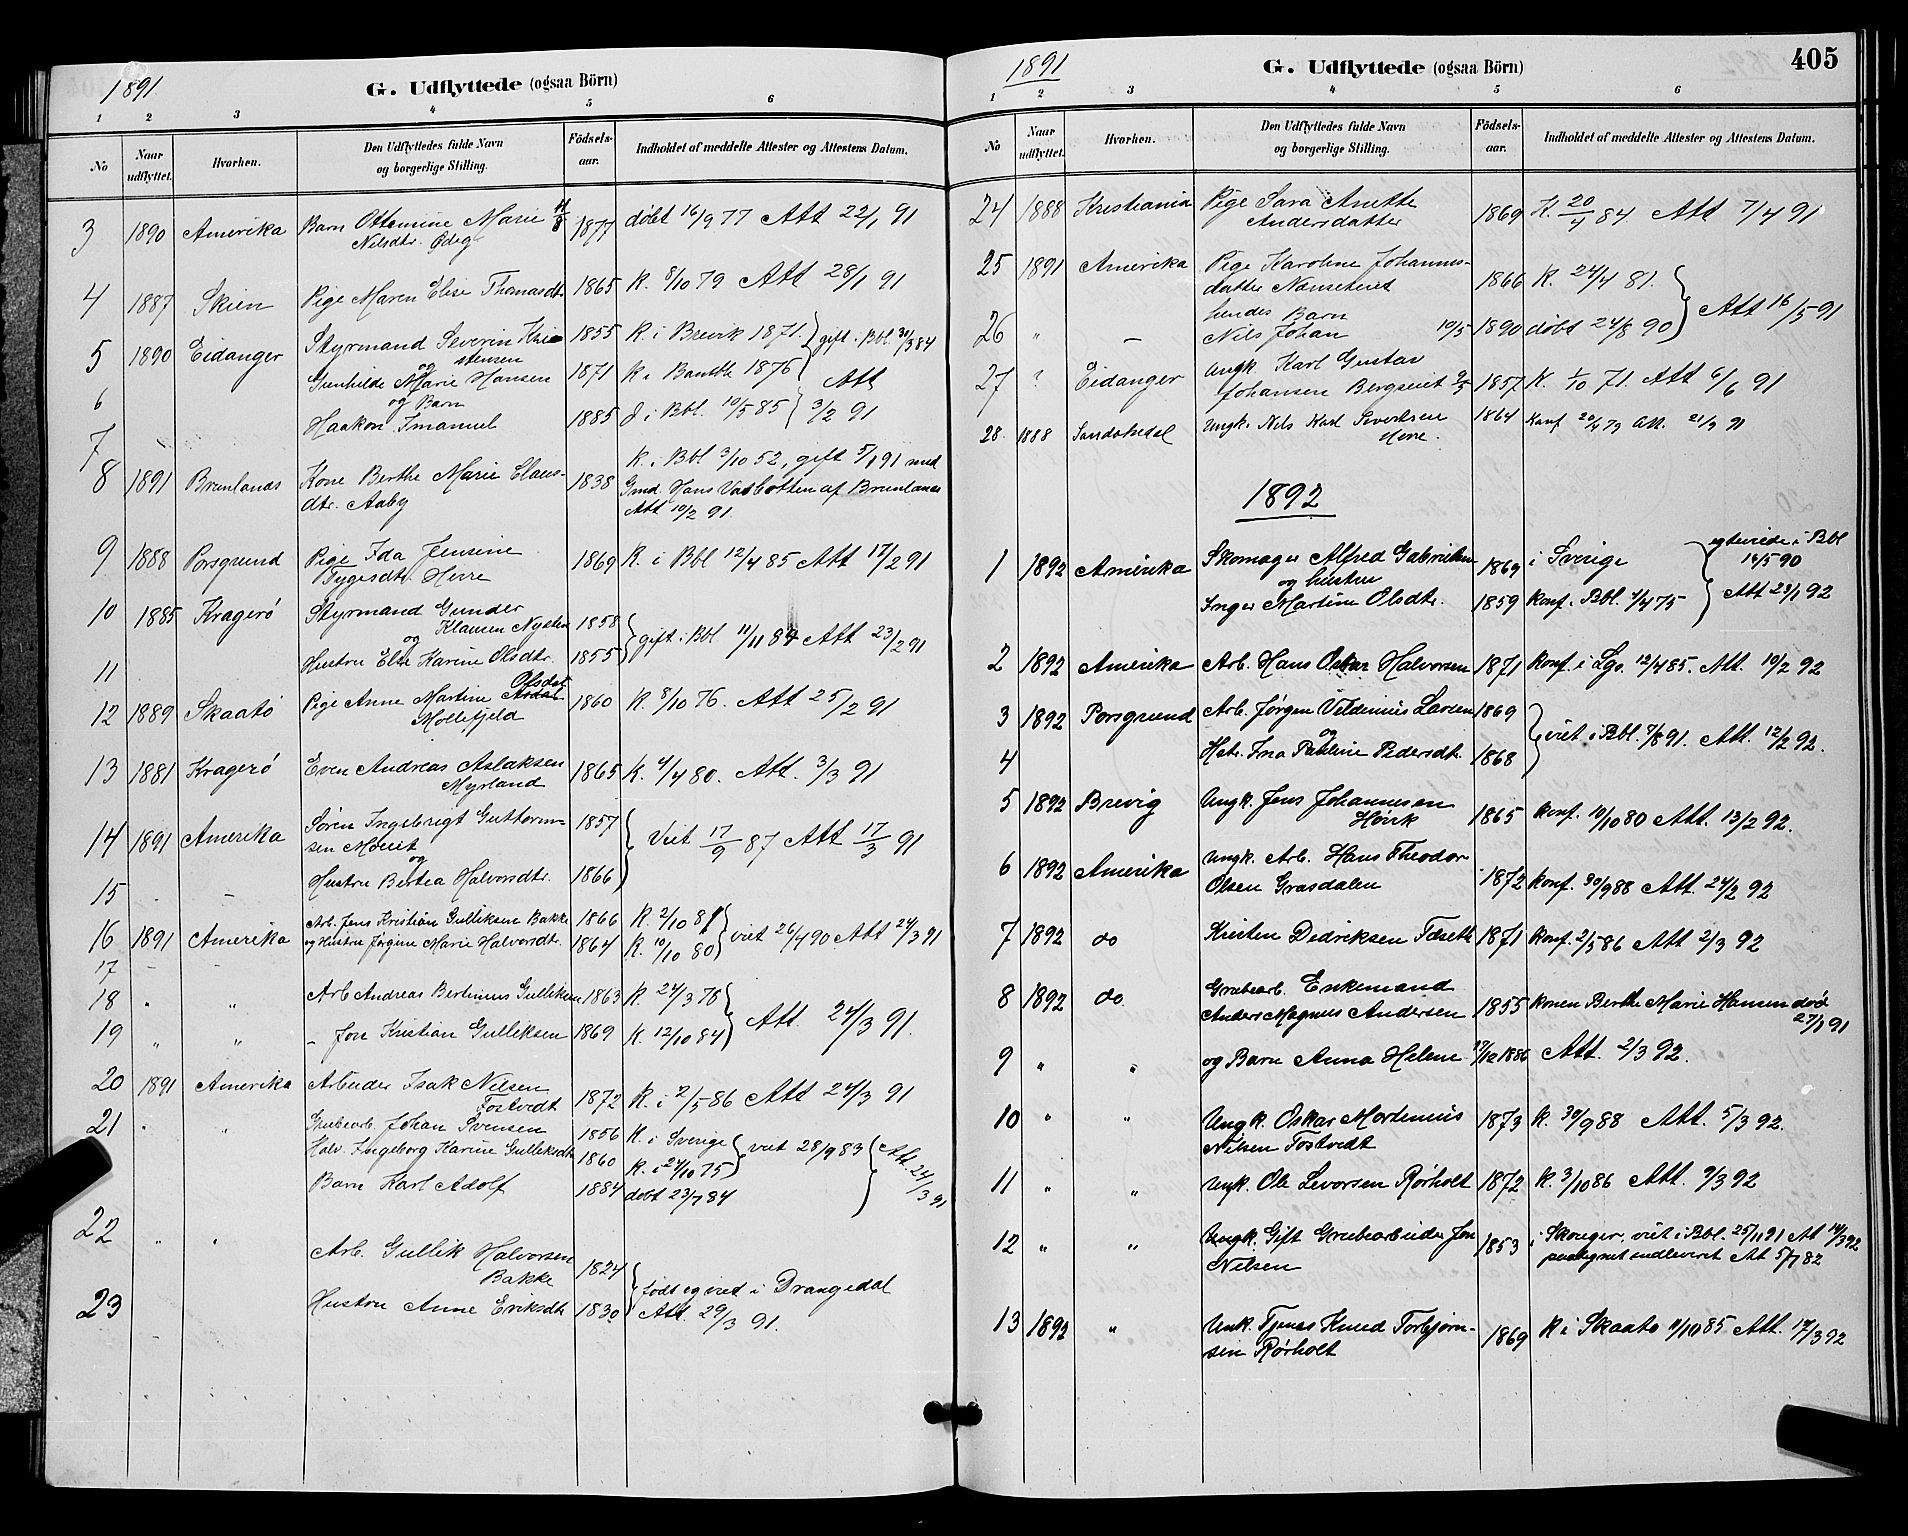 1891
G. Udflyttede (ogsaa Börn)
1 2 3 4 5 6
No
Naar udflyttet.
Hvorhen.
Den Udflyttedes fulde Navn og borgerlige Stilling.
Födsels-aar.
Indholdet af meddelte Attester og Attestens Datum.
3 1890 Amerika Barn Ottomine Marie 11/8 1877 døbt 16/9 77 Att 22/1 91
Nilsdtr. Ødeg
4 1887 Skien Pige Maren Elise Thomasdt. 1865 K. 8/10 79 Att 28/1 91
5 1890 Eidanger Styrmand Severin Kri- 1855 K. i Brevik 1871. gift i Bbl. 30/3 84
stensen
og
6 Gunhilde Marie Hansen 1871 K. i Bamble 1876 Att
og Barn
7 Haakon Imanuel 1885 d i Bbl. 10/5 85 3/2 91
8 1891 Brunlanes Kone Berthe Marie Claus- 1838 K. i Bbl 3/10 52, gift 5/1 91 med
dtr. Aaby Gmd. Hans Vatbotten af Brunlanes
Att 10/2 91.
9 1888 Porsgrund Pige Ida Jensine 1869 K. i Bbl 12/4 85 Att 17/2 91
Tygesdt. Herre
10 1885 Kragerö Styrmand Gunder 1858
Klausen Nysten
og gift i Bbl 11/11 84 Att 23/2 91
11 Hustru Else Karine Olsdtr. 1855
12 1889 Skaatö Pige Anne Martine Olsdat 1860 K. 8/10 76. Att 25/2 91
Mollefjeld
13 1881 Kragerö Even Andreas Aslaksen 1865 K. 4/4 80. Att. 3/3 91
Myrland
14 1891 Amerika Sören Ingebrigt Guttorm- 1857
sen Moeit
og Viet 17/9 87 Att 17/3 91
15 - - Hustru Bertea Halvorsdtr. 1866
16 1891 Amerika Arb. Jens Kristian Gulliksen Bakke 1866 K. 2/10 81 viet 26/4 90 Att 24/3 91
17 - - og Hustru Jørgine Marie Halvorsdtr. 1864 K. 10/10 80
18 " " Arb. Andreas Bertinius Gulliksen 1863 K. 24/3 78
19 " " - Jon Kristian Gulliksen 1869 K. 12/10 84 Att. 24/3 91.
20 1891 Amerika Arbeider Isak Nilsen 1872 K. i 2/5 86 Att 24/3 91
Tostvedt
21 " " Grubearb. Johan Svensen 1856 K. i Sverige viet 28/9 83 Att. 24/3 91
Hstr. Ingeborg Karine Gulliksdt 1860 K. i 24/10 75
Barn Karl Adolf 1884 døbt 23/7 84
22 " " Arb. Gullik Halvorsen 1824
Bakke født og viet i Drangedal
23 Hustru Anne Eriksdt 1830 Att. 29/3 91.
1891
G. Udflyttede (ogsaa Börn)
405
1 2 3 4 5 6
No
Naar udflyttet.
Hvorhen.
Den Udflyttedes fulde Navn og borgerlige Stilling.
Födsels-aar.
Indholdet af meddelte Attester og Attestens Datum.
24 1888 Kristiania Pige Sara Anette 1869 K. 20/4 84. Att 7/4 91
Andersdatter
25 1891 Amerika Pige Karoline Johannes- 1866 K. 24/4 81.
datter Nenseteret
hendes Barn Att 16/5 91
26 " - Nils Johan 10/5 1890 døbt 24/8 90
27 ? Eidanger Ungk. Karl Gustav
Johansen Bergseiet 9/5 1857 K. 1/10 71. Att 6/6 91
28. 1888 Sandøkedal Ungk. Nils Karl Sivertsen 1864 Konf 20/4 79 Att. 21/3 91
Herre.
1892
1 1892 Amerika Skomager Alfred Gabrielsen 1869 i Sverige egteviede i Bbl
og hustru 16/5 90
Inger Martine Olsdtr. 1859 Konf. i Bbl. 4/4 75 Att 23/1 92
2 1892 Amerika Arb. Hans Oskar Halvorsen 1871 Konf. i Lgo. 12/4 85. Att. 10/2 92
3 1892 Porsgrund Arb. Jørgen Veldenius Larsen 1869
og viet i Bbl. 9/8 91. Att. 12/2 92.
4 Hst. Ina Pauline Pedersdt. 1868
5 1892 Brevig Ungk. Jens Johannesen 1865 Konf. 10/10 80 Att. 13/2 92.
Hovik
6 1892 Amerika Ungk. Arb. Hans Theodor
Olsen Grasdalen 1872 Konf. 30/9 88 Att. 24/2 92
7 1892 do Kristen Dedriksen Tæseth 1871 Konf. 2/5 86 Att 2/3 92
8 1892 do. Grubearb. Enkemand
Anders Magnus Andersen 1855 Konen Berthe Marie Hansen død
27/1 91
9 " " og Barn Anna Helene 17/12 1886 Att. 2/3 92.
10 " " Ungk. Oskar Mortinius 1873 K. 30/9 88 Att. 5/3 92.
Nilsen Tostvedt
11 " " Ungk. Ole Levorsen Rörholt 1872 K. 3/10 86 Att. 9/3 92
12 " " Ungk. Gift Grubearbeider Jon 1853 i Skouger, viet i Bbl. 25/1 91 At 14/3 92
Nilsen paategnet indleveret At 5/7 82
13 1892 " Unk. Tjener Knud Torbjørn- 1869 K i Skaatö 11/10 85 Att. 14/3 92
sen Rörholt